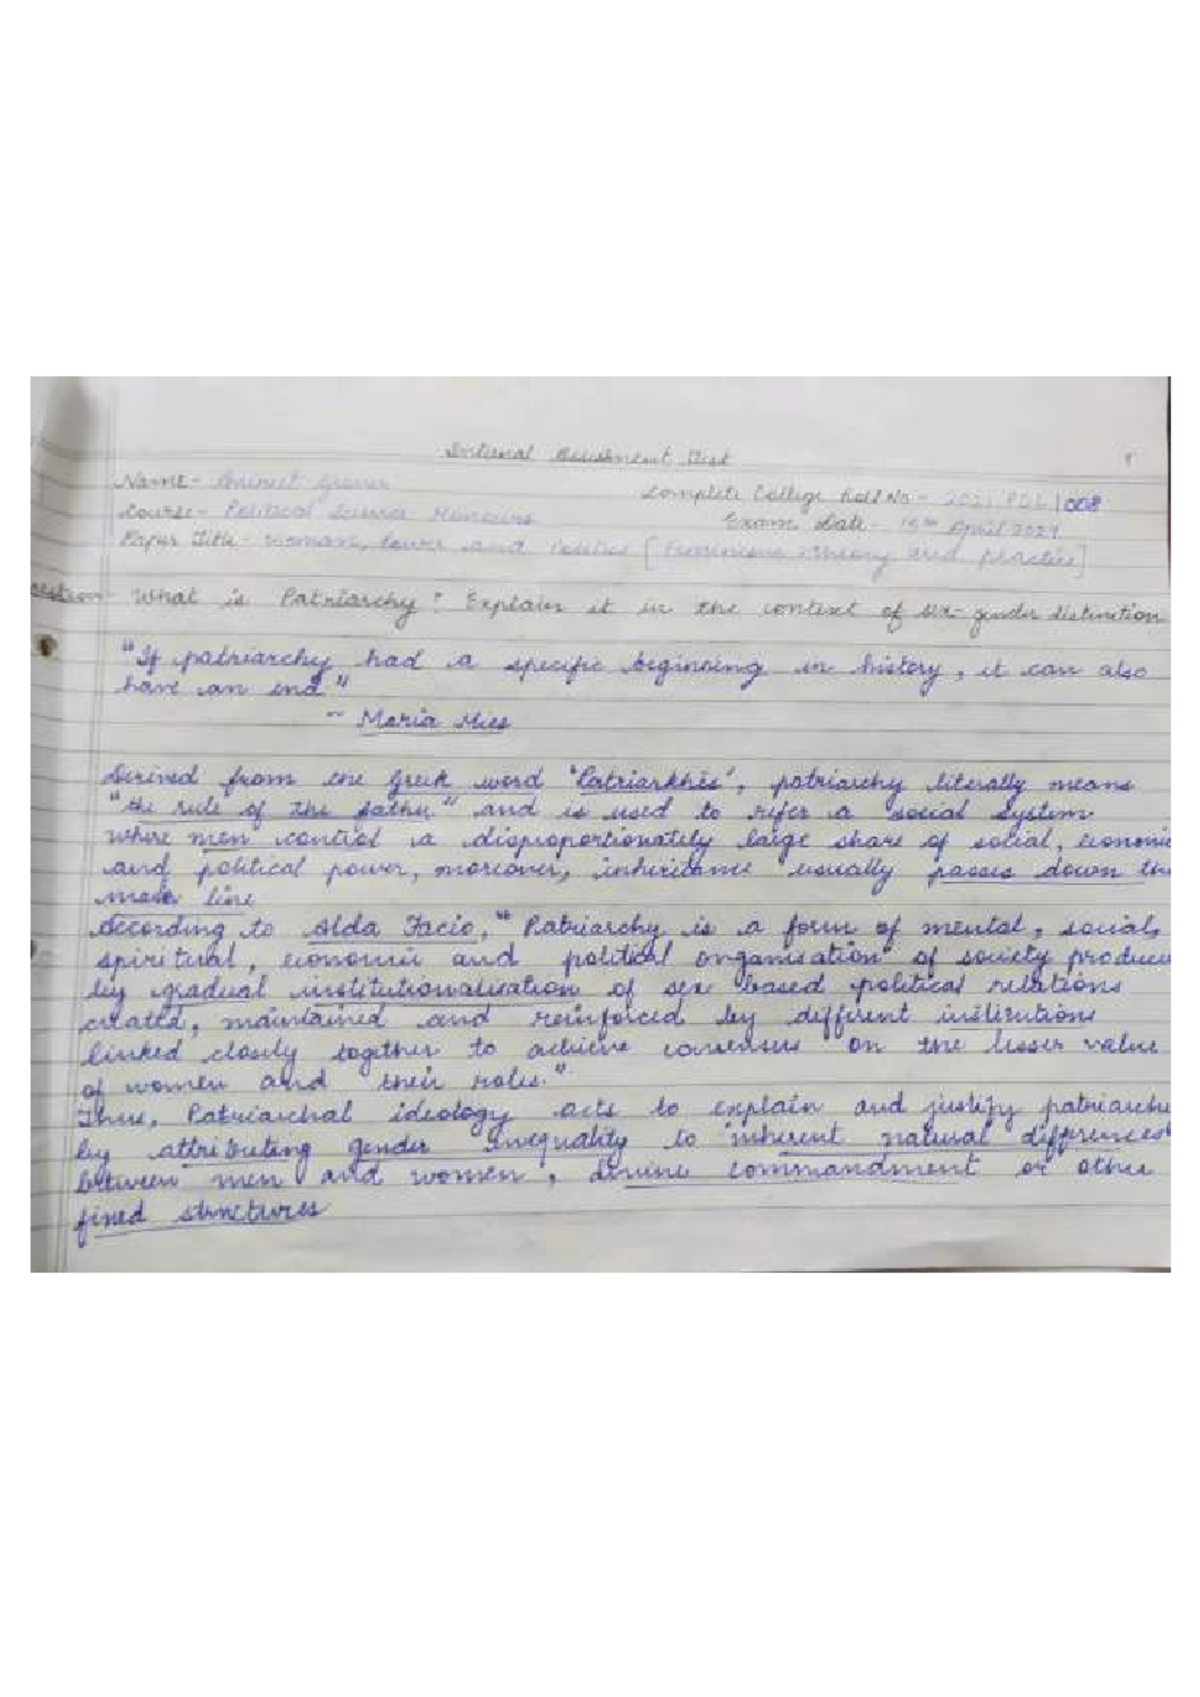 Internal Assessment Test
1
Name - Grover
Complete College Roll No. - 2021/POL/008
Course - Political Science Honours
Exam Date - April 2024
Paper Title - Women, Power and Politics [Feminism: Theory and practice]
What is Patriarchy? Explain it in the context of sex-gender distinction
"If patriarchy had a specific beginning in history, it can also
have an end."
~ Maria Mies
Derived from the Greek word 'Patriarkhēs', patriarchy literally means
"the rule of the father" and is used to refer a social system
where men control a disproportionately large share of social, economic
and political power, moreover, inheritance usually passes down the
male line
According to Alda Facio, "Patriarchy is a form of mental, social,
spiritual, economic and political organisation of society produce
by gradual institutionalisation of sex based political relations
created, maintained and reinforced by different institutions
linked closely together to achieve consensus on the lesser value
of women and their roles."
Thus, Patriarchal ideology acts to explain and justify patriarchy
by attributing gender inequality to inherent natural differences
between men and women, divine commandment or other
fixed structures